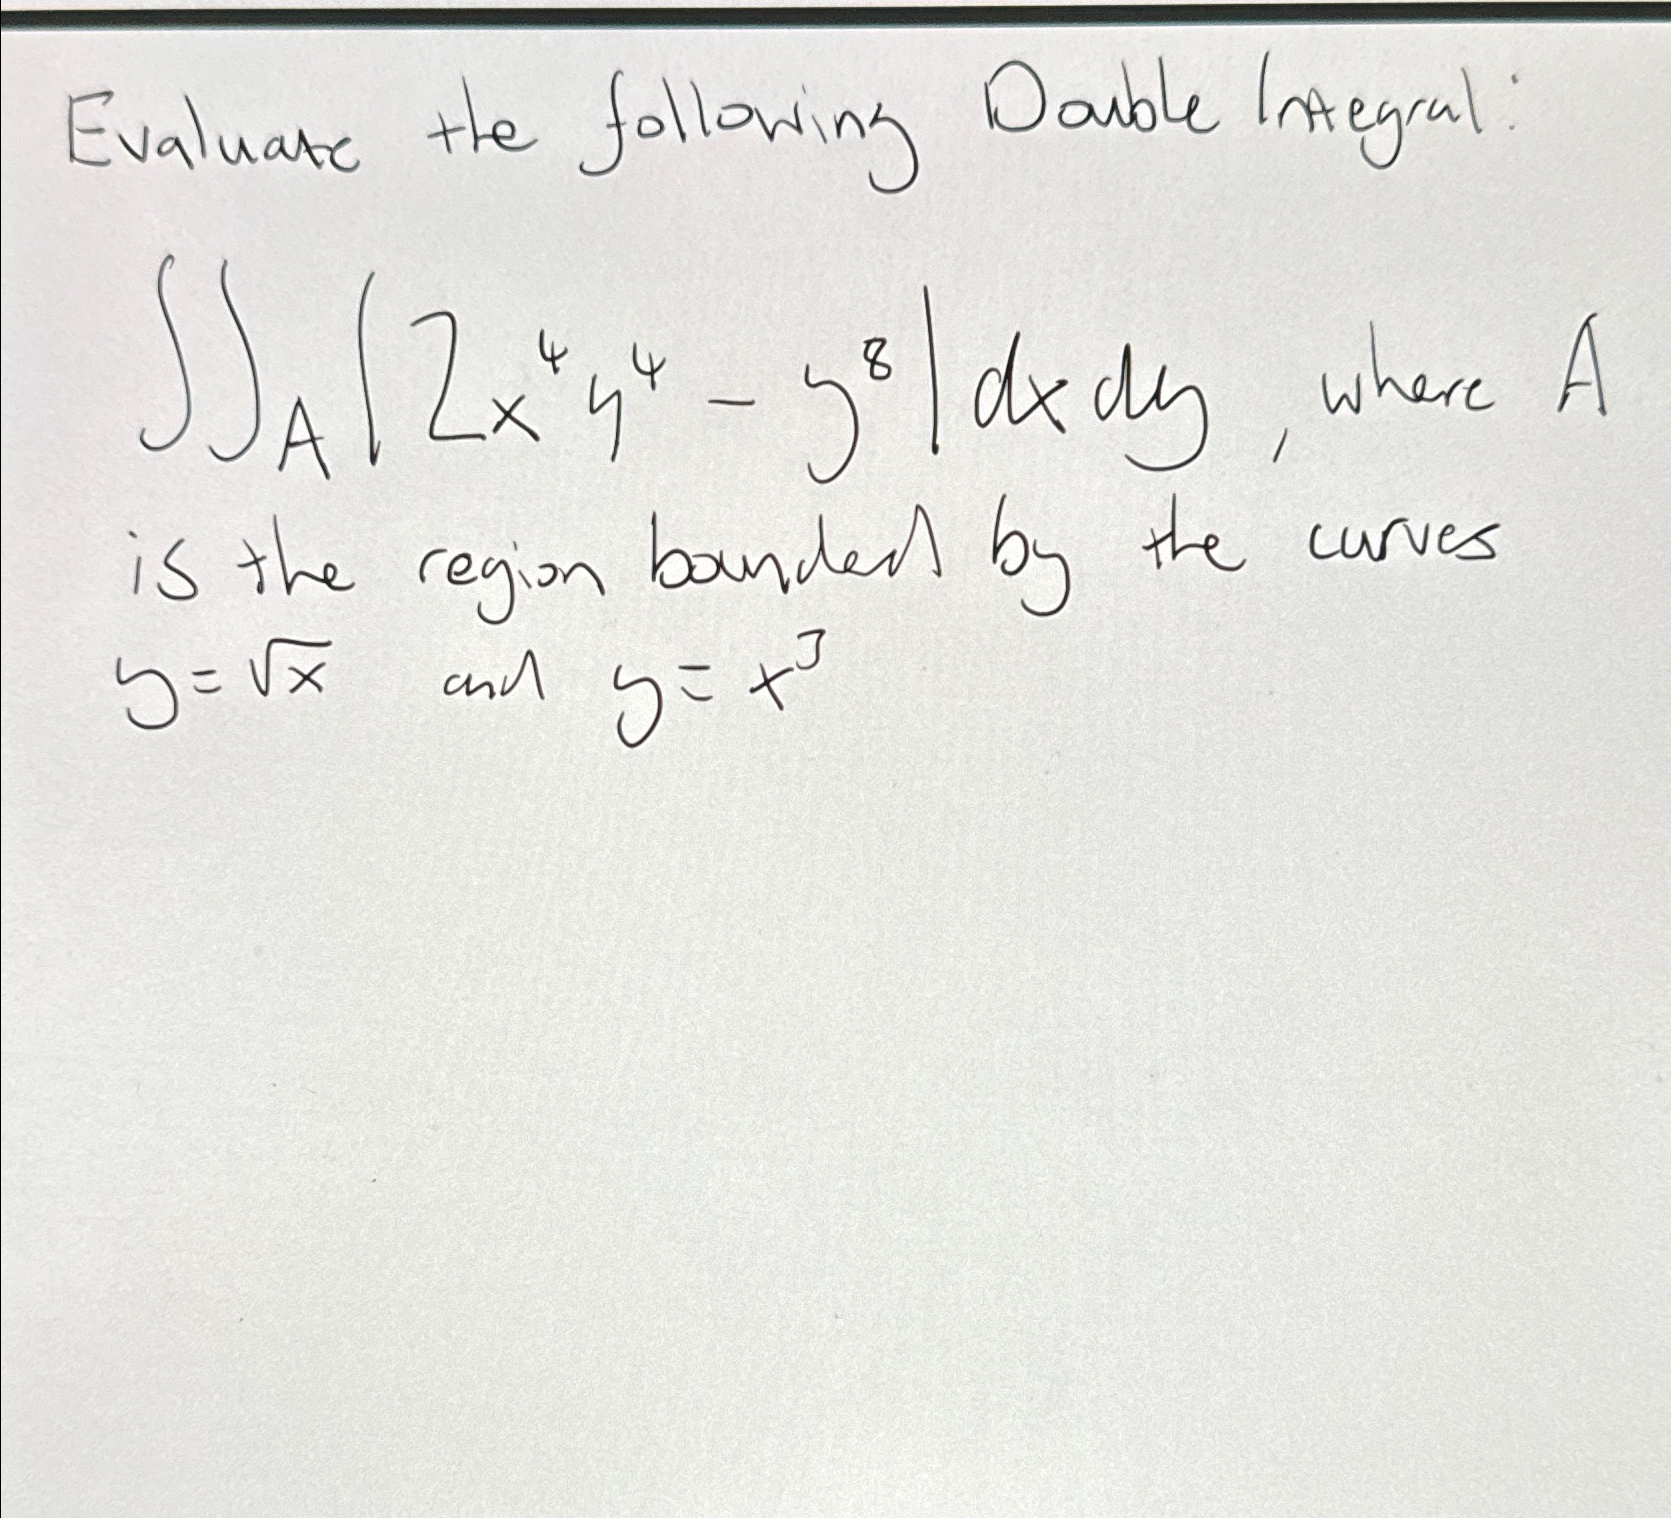 Evaluate the following Double Integral:
∬_A |2x⁴y⁴ - y⁸| dx dy, where A
is the region bounded by the curves
y = √x and y = x³